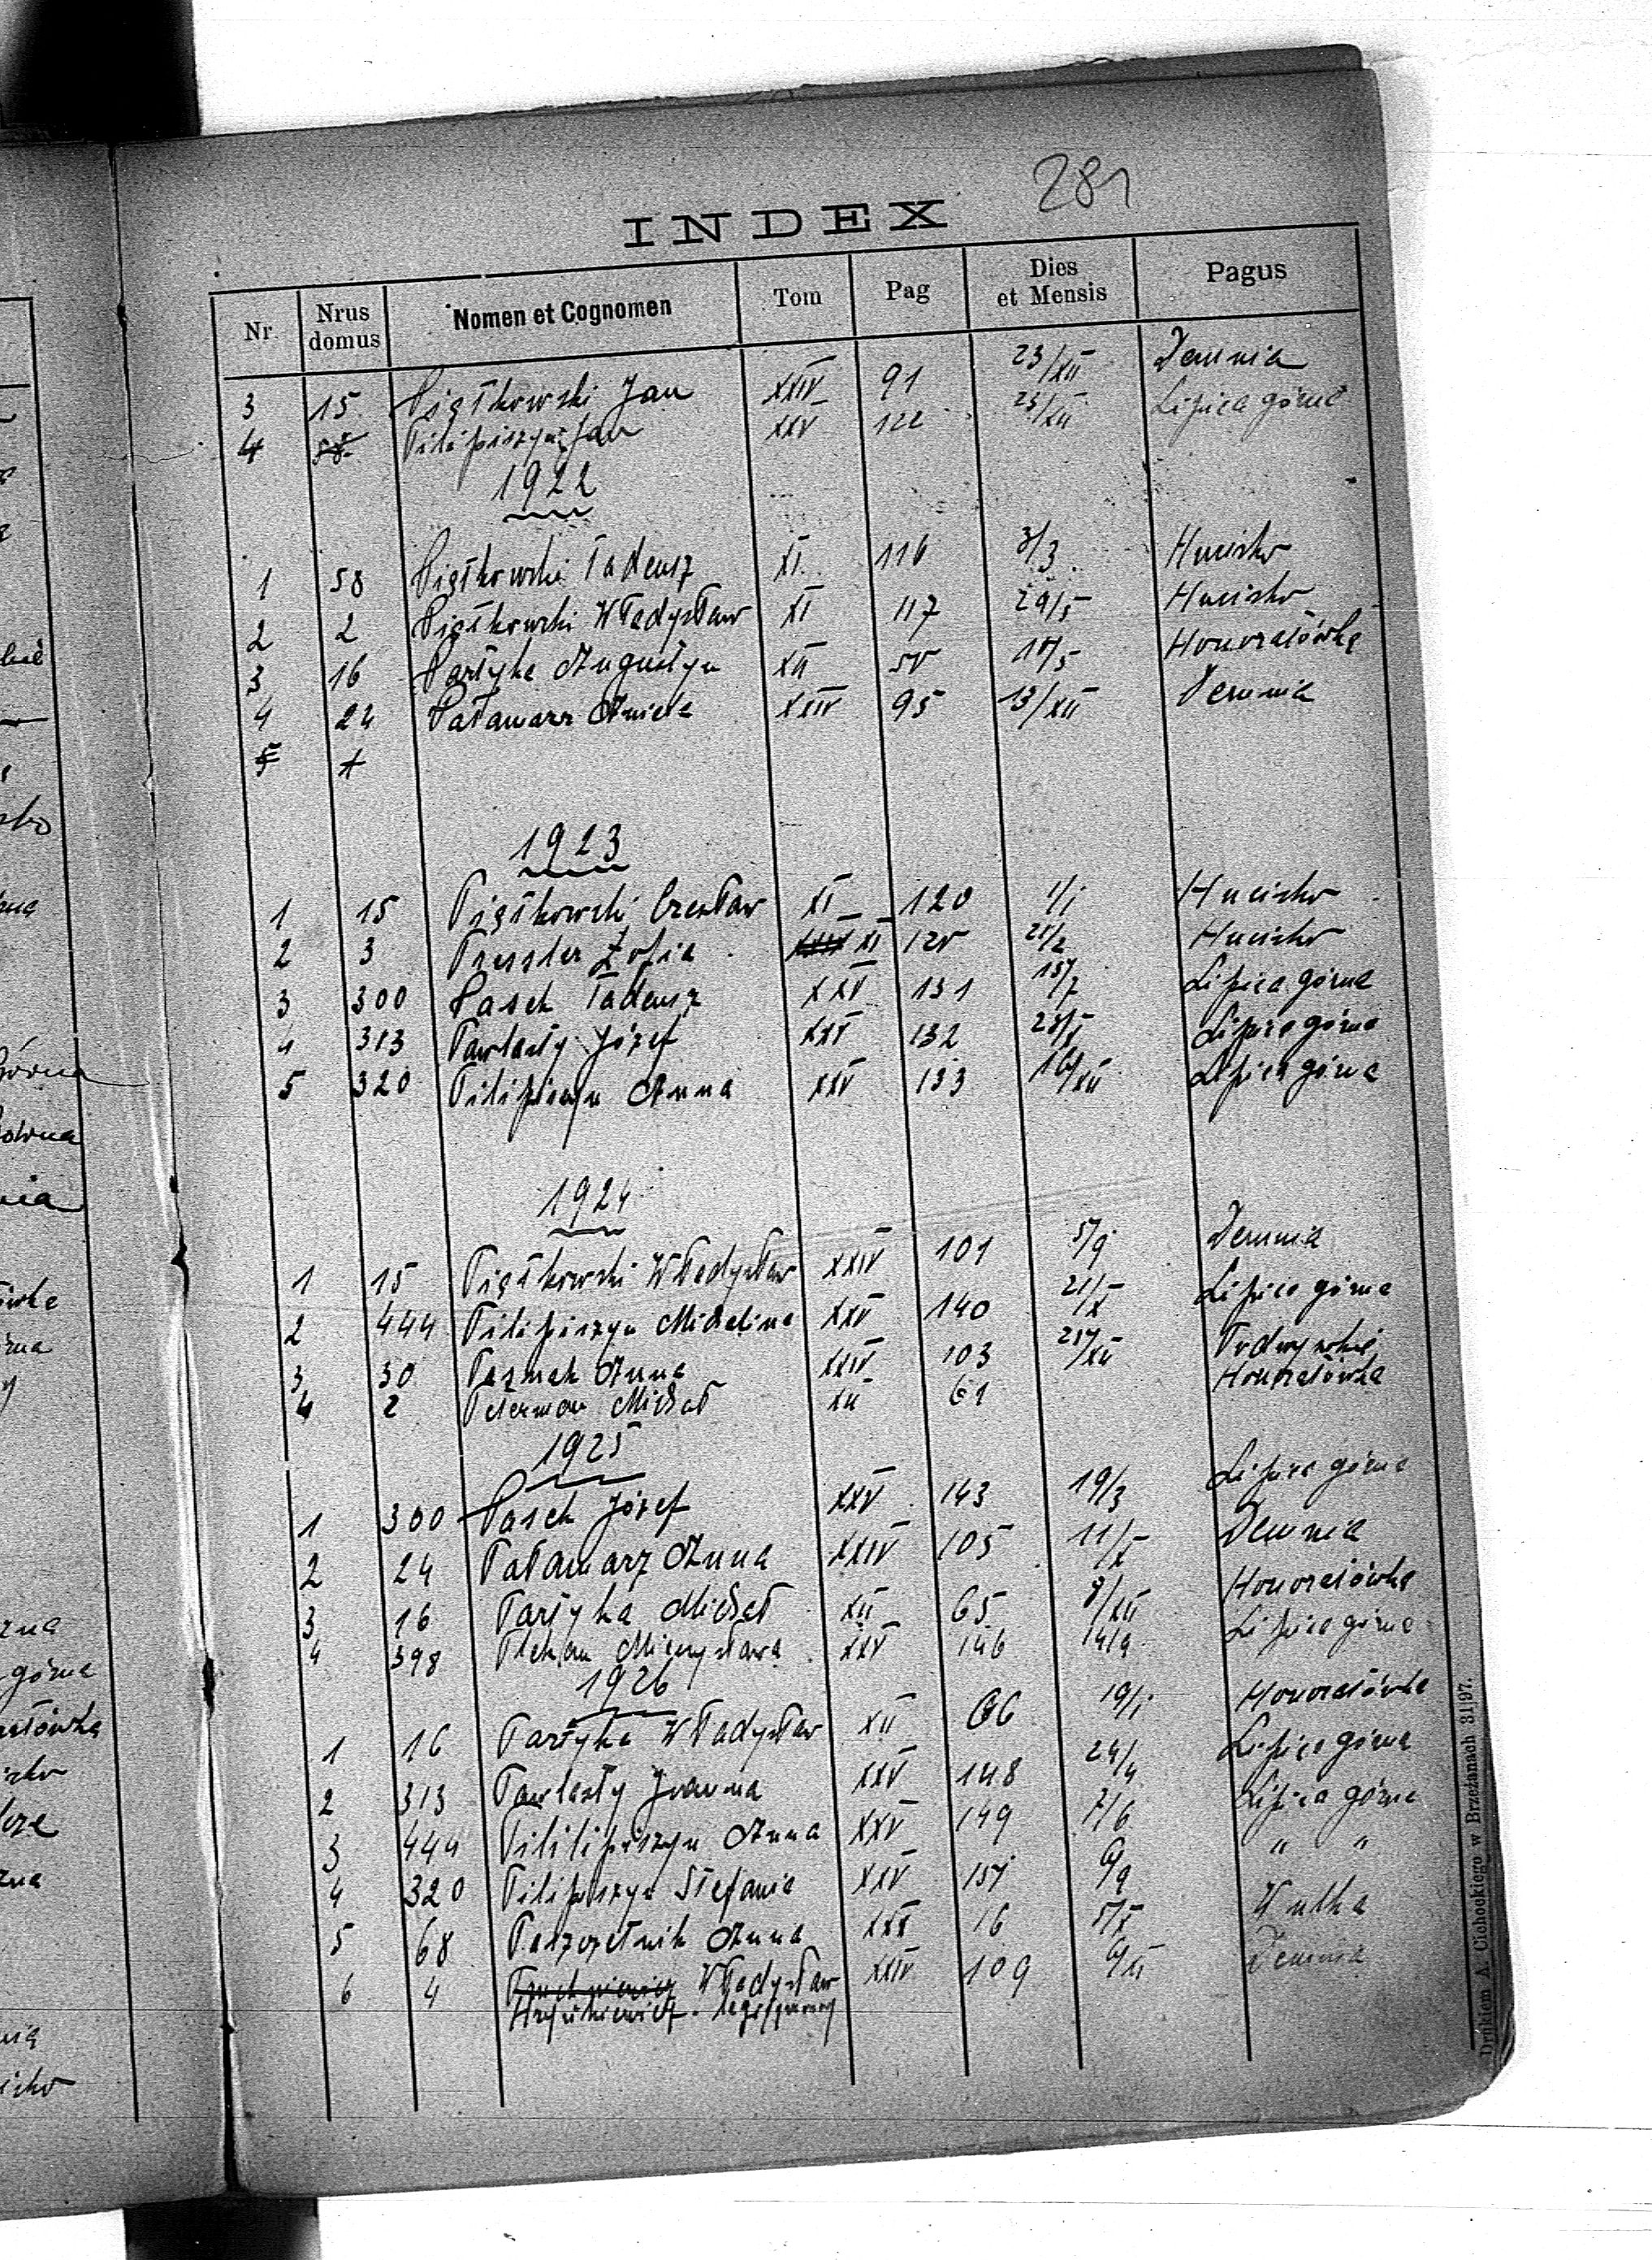 281
INDEX
Nr Nrus domus Nomen et Cognomen Tom Pag Dies et Mensis Pagus
3 15 Piątkowski Jan XXIV 91 23/XII Demnia
4 Pilipiszyn Jan XXV 122 25/XII Lipica górna
1922
1 58 Piątkowski Tadeusz XI 116 3/3 Hucisko
2 2 Piątkowski Władysław XI 117 29/5 Hucisko
3 16 Partyka Augustyn XII Honoratówka
4 24 Pałamarz Aniela XXIV 95 13/XII Demnia
5 1
1923
1 15 Piątkowski Czesław XI 120 1/1 Hucisko
2 3 Pressler Zofia XI Hucisko
3 300 Pasek Tadeusz XXV 131 15/7 Lipica górna
4 313 Pawlasty Józef XXV 132 Lipica górna
5 320 Pilipiszyn Anna XXV 133 16/XII Lipica górna
1924
1 15 Piątkowski Władysław XXIV 101 5/9 Demnia
2 444 Pilipiszyn Michalina XXV 140 21/X Lipica górna
3 30 Anna XXIV 103 Podwysokie
4 2 Peterman Michał XII 61 Honoratówka
1925
1 300 Pasek Józef XXV 143 19/3 Lipica górna
2 24 Pałamarz Anna XXIV 105 11/X Demnia
3 16 Partyka Michał XII 65 8/XII Honoratówka
4 398 Plekan Mieczysława XXV 146 14/9 Lipica górna
1926
1 16 Partyka Władysław XII 66 19/1 Honoratówka
2 313 Pawlasty Joanna XXV 148 24/4 Lipica górna
3 444 Pililipiszyn Anna XXV 149 7/6 Lipica górna
4 320 Pilipiszyn Stefania XXV 151 6/9 " "
5 68 Anna XXX 16 5/X Wulka
6 4 Władysław XXIV 109 Demnia
Hryńkiewicz
Drukiem A. Cichockiego w Brzeżanach 31|97.